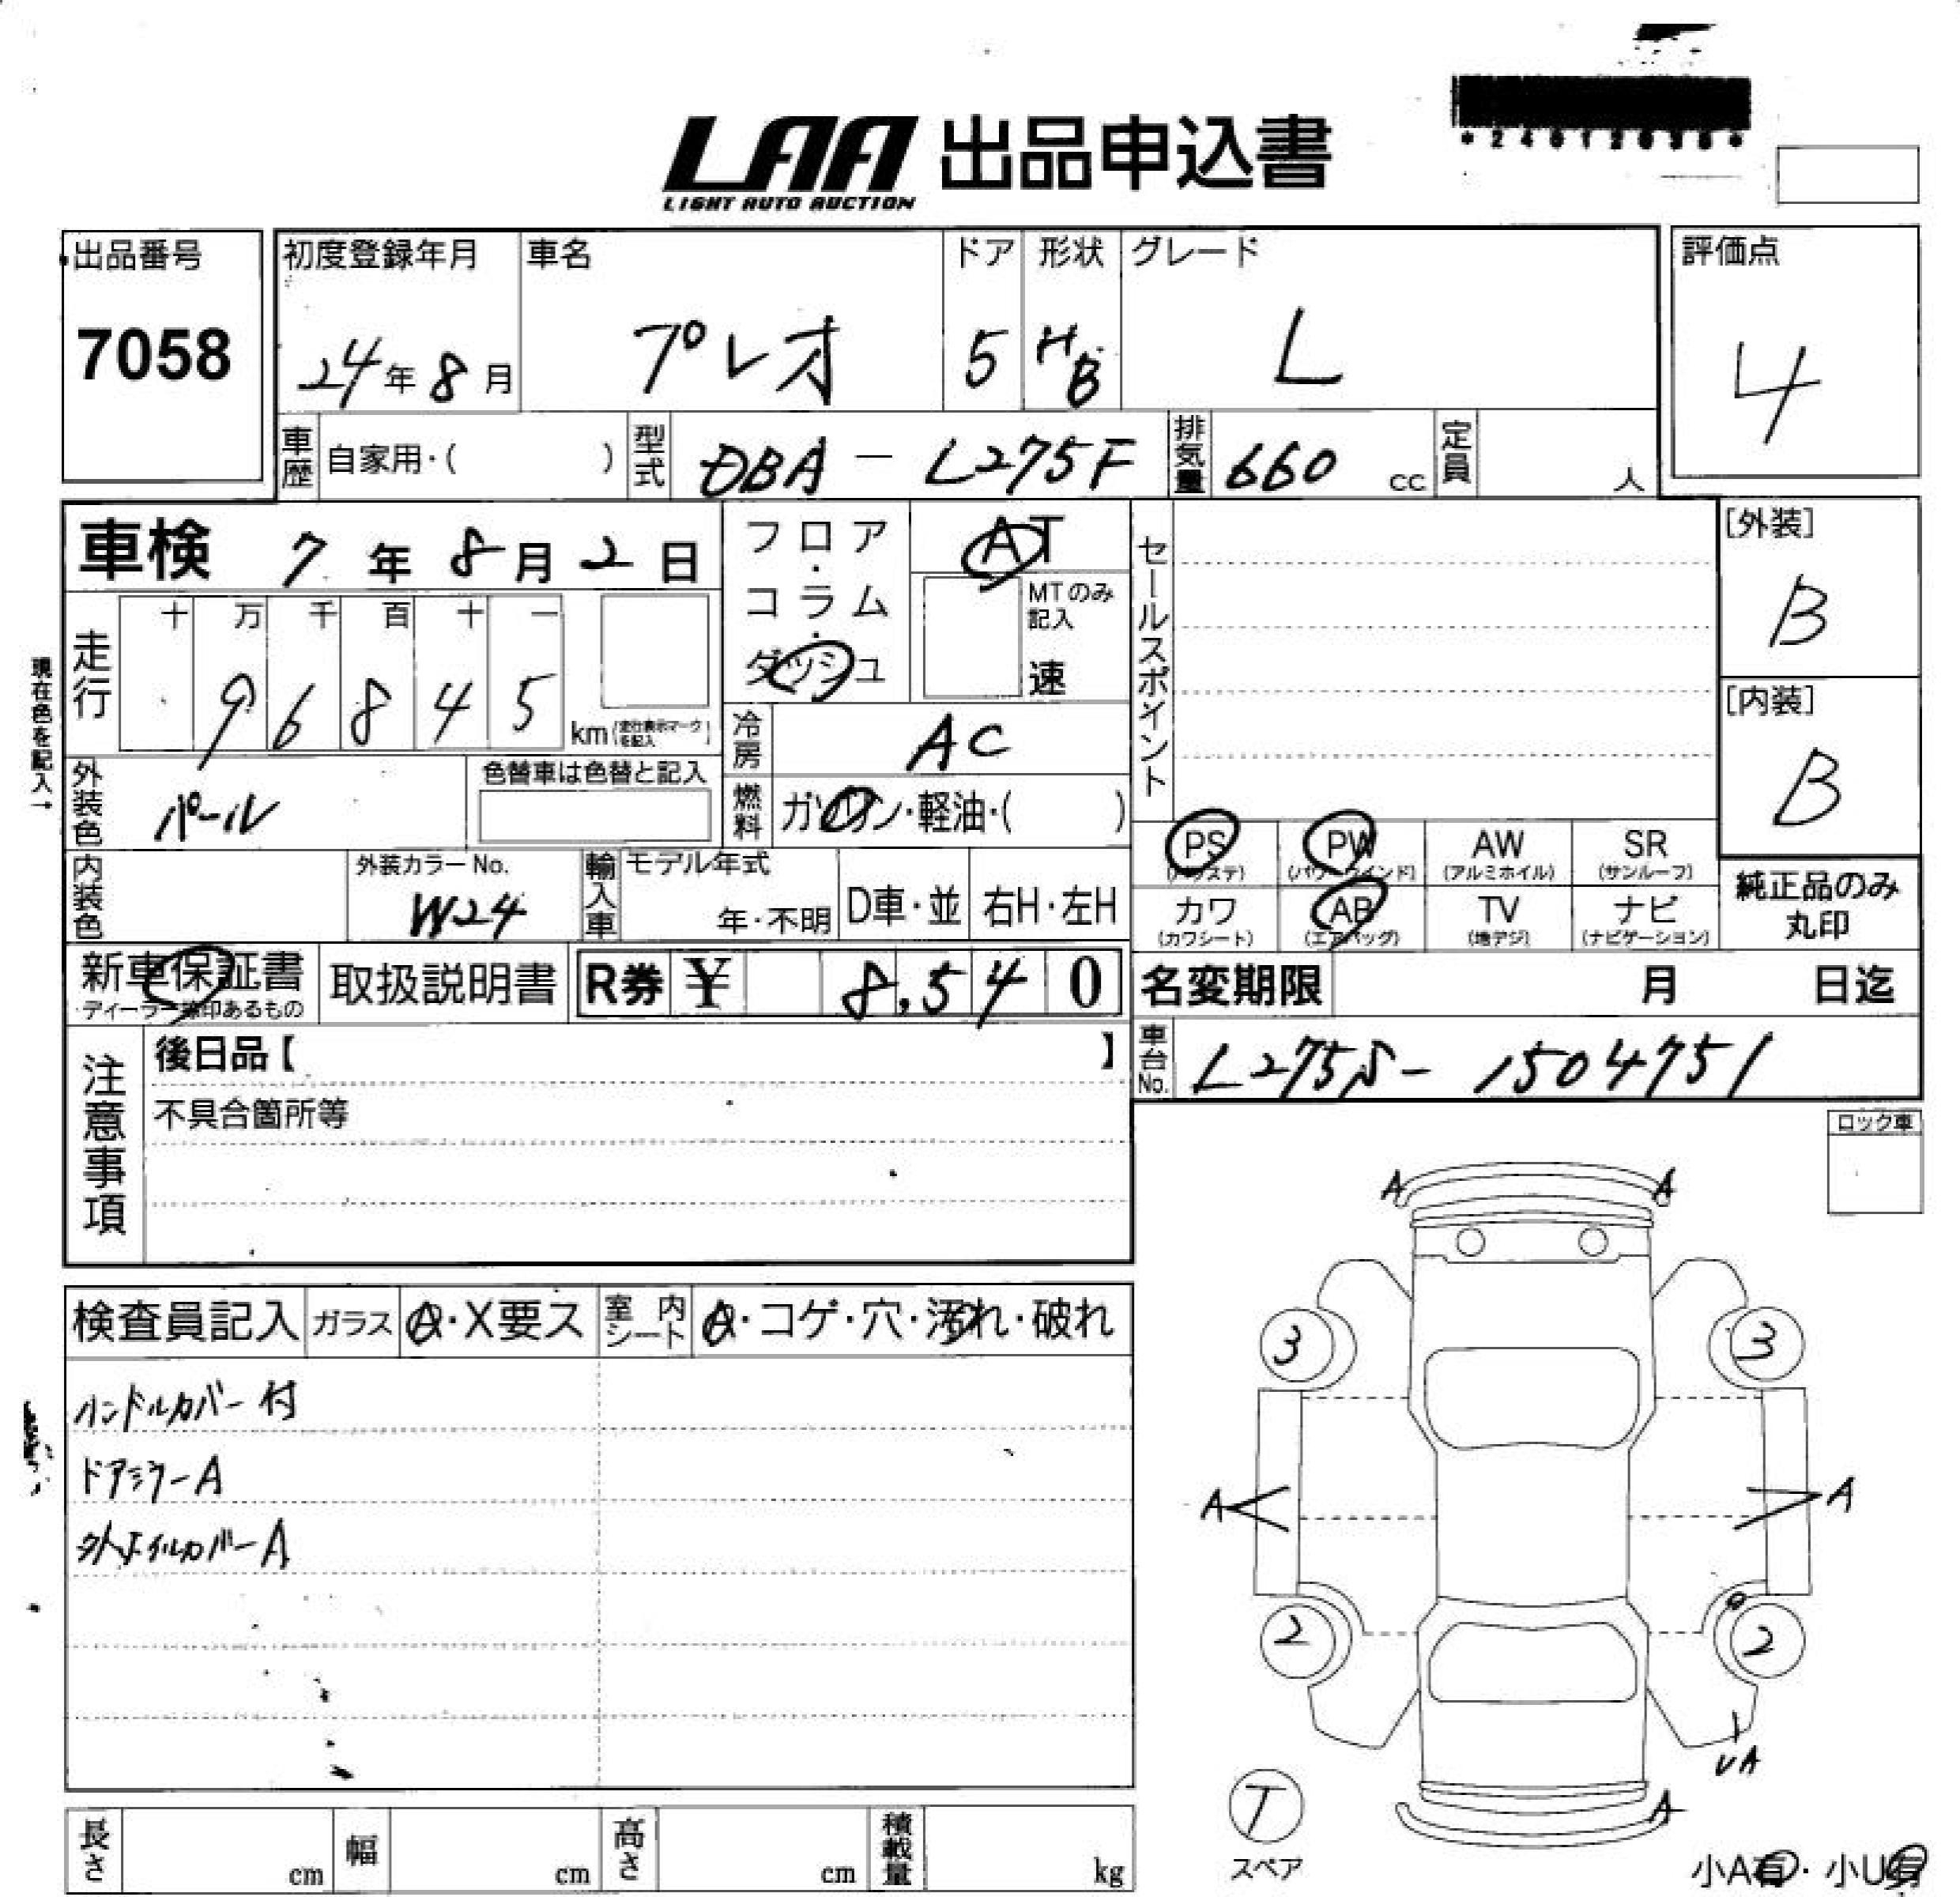 *24012030*
LAA 出品申込書
LIGHT AUTO AUCTION
出品番号 初度登録年月 車名 ドア 形状 グレード 評価点
7058 24年8月 プレオ 5 HB L 4
車歴 自家用・( ) 型式 DBA - L275F 排気量 660 cc 定員 人
車検 7年8月2日 フロア・コラム・ダッシュ AT セールスポイント [外装]
B
MTのみ記入
速
現在色を記入→
走行 十 万 千 百 十 一
9 6 8 4 5 km (走行表示マークを記入)
[内装]
B
冷房 AC
外装色 パール 色替車は色替と記入 燃料 ガソリン・軽油・( )
PS PW AW SR
(パワステ) (パワーウインド) (アルミホイル) (サンルーフ)
内装色 外装カラーNo. W24 輸入車 モデル年式 年・不明 D車・並 右H・左H
カワ AB TV ナビ
(カワシート) (エアバッグ) (地デジ) (ナビゲーション)
純正品のみ
丸印
新車保証書 取扱説明書 R券 ¥ 8,540 名変期限 月 日迄
ディーラー捺印あるもの
注意事項 後日品【 】 車台No. L275S- 1504751
不具合箇所等
ロック車
A A
検査員記入 ガラス A・X要ス 室内シート A・コゲ・穴・汚れ・破れ
3 3
ハンドルカバー付
ドアミラーA
A A
ホイルカバーA
2 2
UA
T A
スペア
長さ cm 幅 cm 高さ cm 積載量 kg
小A有・小U有